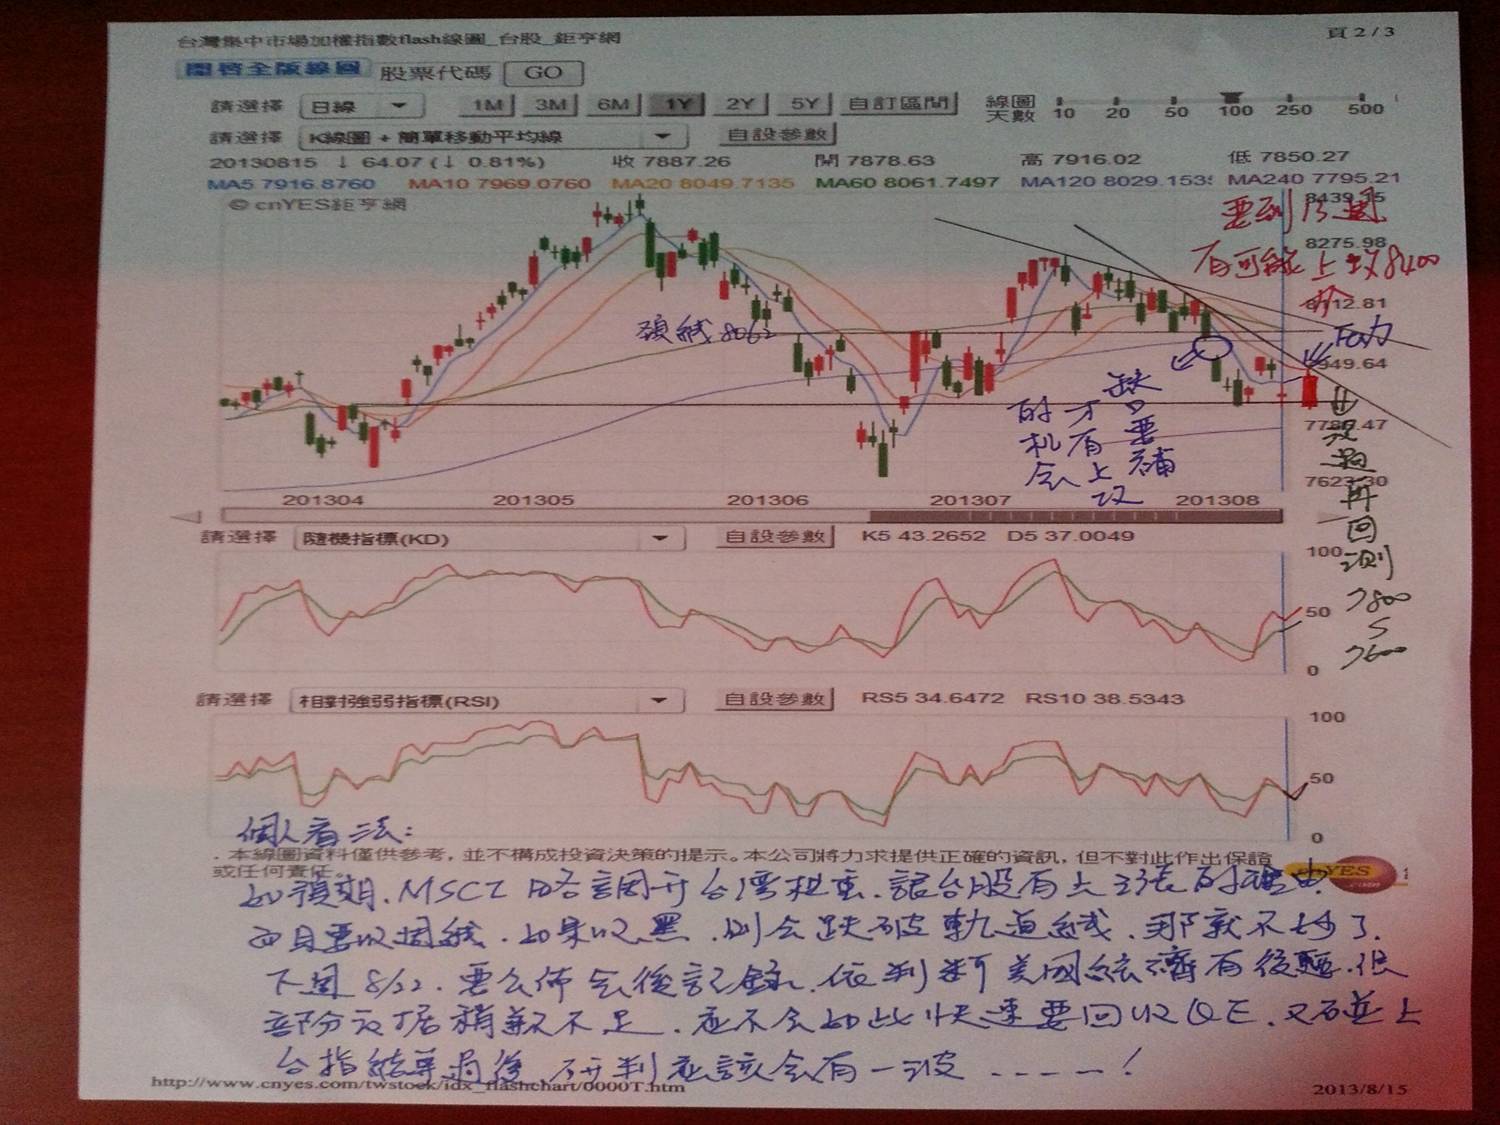 台灣集中市場加權指數flash線圖_台股_鉅亨網
頁 2 / 3
開啓全版線圖 股票代碼 GO
請選擇 日線 1M 3M 6M 1Y 2Y 5Y 自訂區間 線圖天數 10 20 50 100 250 500
請選擇 K線圖 + 簡單移動平均線 自設參數
20130815 ↓ 64.07 (↓ 0.81%) 收 7887.26 開 7878.63 高 7916.02 低 7850.27
MA5 7916.8760 MA10 7969.0760 MA20 8049.7135 MA60 8061.7497 MA120 8029.153 MA240 7795.21
© cnYES鉅亨網
8439.15
要到13週
8275.98
有可能上攻8400
8112.81
頸線8062
壓力
7949.64
缺口要補
才有上攻
的机会
7786.47
7623.30
不過再回測
7800
7600
201304 201305 201306 201307 201308
請選擇 隨機指標(KD) 自設參數 K5 43.2652 D5 37.0049
100
50
0
請選擇 相對強弱指標(RSI) 自設參數 RS5 34.6472 RS10 38.5343
100
50
0
個人看法:
. 本線圖資料僅供參考, 並不構成投資決策的提示。本公司將力求提供正確的資訊, 但不對此作出保證
或任何責任。
cnYES
.com
如預期. MSCI 略調升台灣权重. 讓台股有大漲的理由
而且要以週線. 如果收黑. 則会跌破軌道線. 那就不妙了.
下週 8/22. 要公佈会後記錄. 依判斷美國經濟有後軀. 但
部分京据稍欵不足. 應不会如此快速要回收QE. 又而並上
台指結算過後. 研判應該会有一波 -----!
http://www.cnyes.com/twstock/idx_flashchart/0000T.htm
2013/8/15